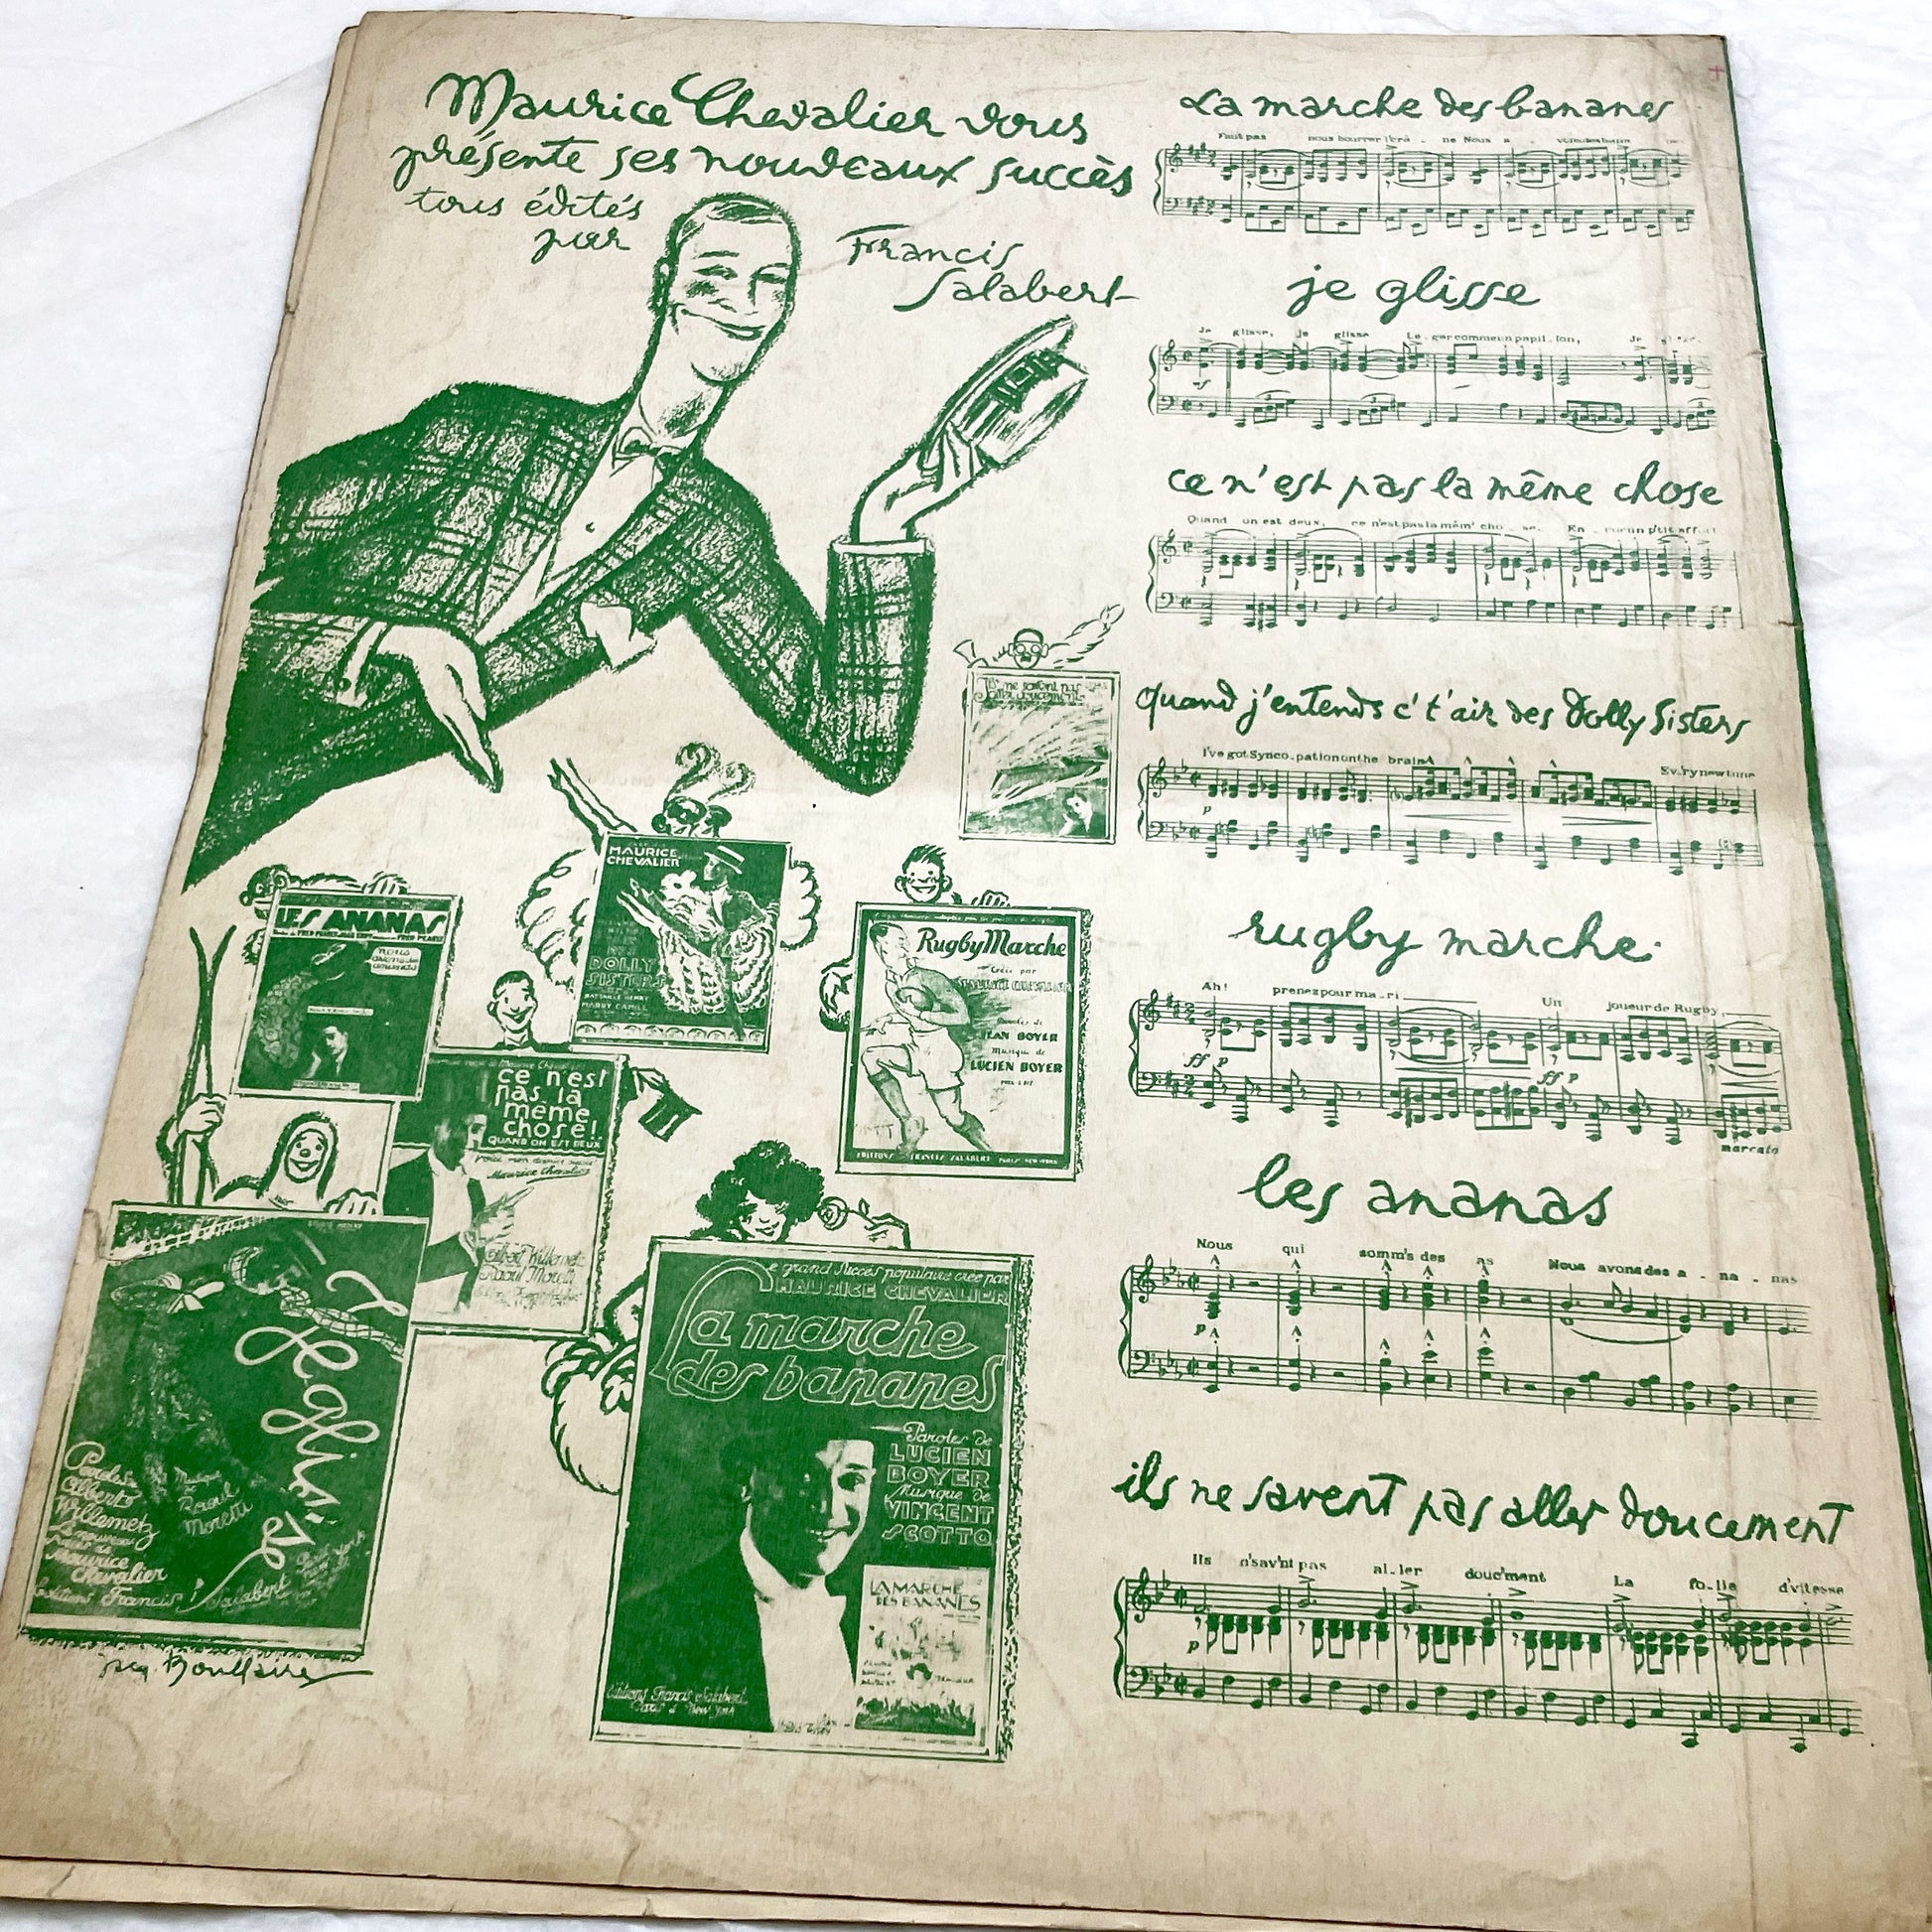 Maurice Chevalier vous
présente ses nouveaux succès
tous édités
par
Francis
Salabert
La marche des bananes
Faut pas nous bourrer l'crâ - ne Nous a
je glisse
Je glisse, Je glisse Lé - ger comme un papil - lon, Je
ce n'est pas la même chose
Quand on est deux, ce n'est pas la mêm' cho - se. En
quand j'entends c't'air des Dolly Sisters
I've got Synco - pation on the brain Ev'ry new tune
p
rugby marche
Ah! prenez pour ma - ri Un joueur de Rugby,
ff p ff p
marcato
les ananas
Nous qui somm's des as Nous avons des a - na - nas
p
ils ne savent pas aller doucement
Ils n'sav'nt pas al - ler douc'ment La fo - lie d'vitesse
p
Ils ne savent pas
aller doucement
MAURICE
CHEVALIER
DOLLY
SISTERS
LES ANANAS
Rugby Marche
Créée par
MAURICE CHEVALIER
Paroles de
JEAN BOYER
Musique de
LUCIEN BOYER
EDITIONS FRANCIS SALABERT PARIS NEW-YORK
ce n'est
pas la
même
chose!
QUAND ON EST DEUX
Maurice Chevalier
Albert Willemetz
Raoul Moretti
Je gliss'
Paroles de
Albert
Willemetz
Musique
de
Raoul
Moretti
Le nouveau
Maurice
Chevalier
Editions Francis Salabert
Le grand Succès populaire créé par
MAURICE CHEVALIER
La marche
des bananes
Paroles de
LUCIEN
BOYER
Musique de
VINCENT
SCOTTO
LA MARCHE
DES BANANES
Editions Francis Salabert
Paris New York